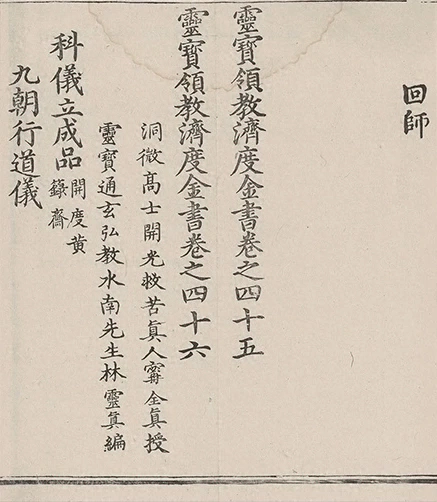 回師
靈寶領教濟度金書卷之四十五
靈寶領教濟度金書卷之四十六
洞微高士開光救苦真人寗全真授
靈寶通玄弘教水南先生林靈真編
科儀立成品開度黃籙齋
九朝行道儀